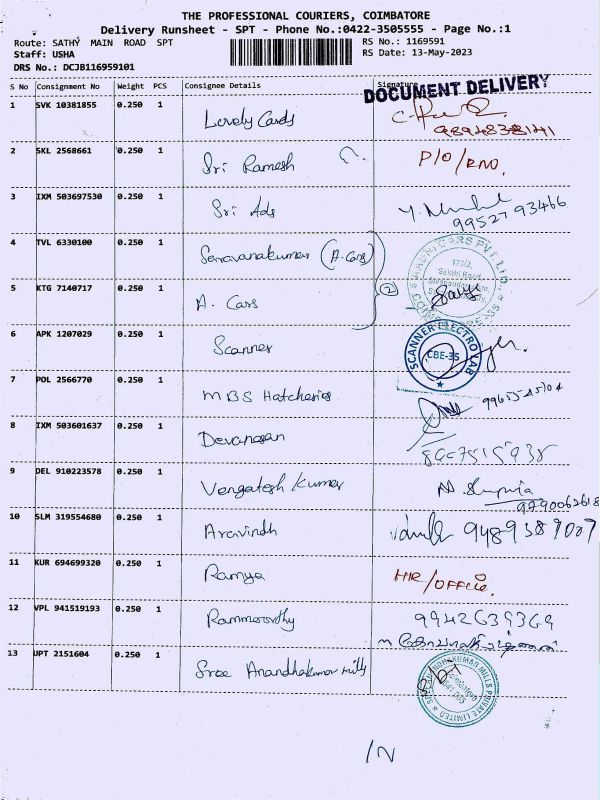 THE PROFESSIONAL COURIERS, COIMBATORE
Delivery Runsheet - SPT - Phone No.:0422-3505555 - Page No.:1
Route: SATHY MAIN ROAD SPT RS No.: 1169591
Staff: USHA RS Date: 13-May-2023
DRS No.: DCJB116959101
S No Consignment No Weight PCS Consignee Details Signature
DOCUMENT DELIVERY
1 SVK 10381855 0.250 1 Lovely Cards
2 SKL 2568661 0.250 1 Sri Ramesh P/O/RNO.
3 IXM 503697530 0.250 1 Sri Ads
9952793466
4 TVL 6330100 0.250 1 Saravanakumar (A. Cars)
5 KTG 7140717 0.250 1 A. Cars (2)
6 APK 1207029 0.250 1 Scanner SCANNER ELECTRO LAB CBE-35
7 POL 2566770 0.250 1 MBS Hatcheries
8 IXM 503601637 0.250 1 Devanesan
9 DEL 910223578 0.250 1 Vengatesh Kumar
9790062618
10 SLM 319554680 0.250 1 Aravindh 9489389007
11 KUR 694699320 0.250 1 Ramya HR/OFFICE.
12 VPL 941519193 0.250 1 Rammoorthy 9942639369
13 UPT 2151604 0.250 1 Sree Anandhakumar Mills
IN